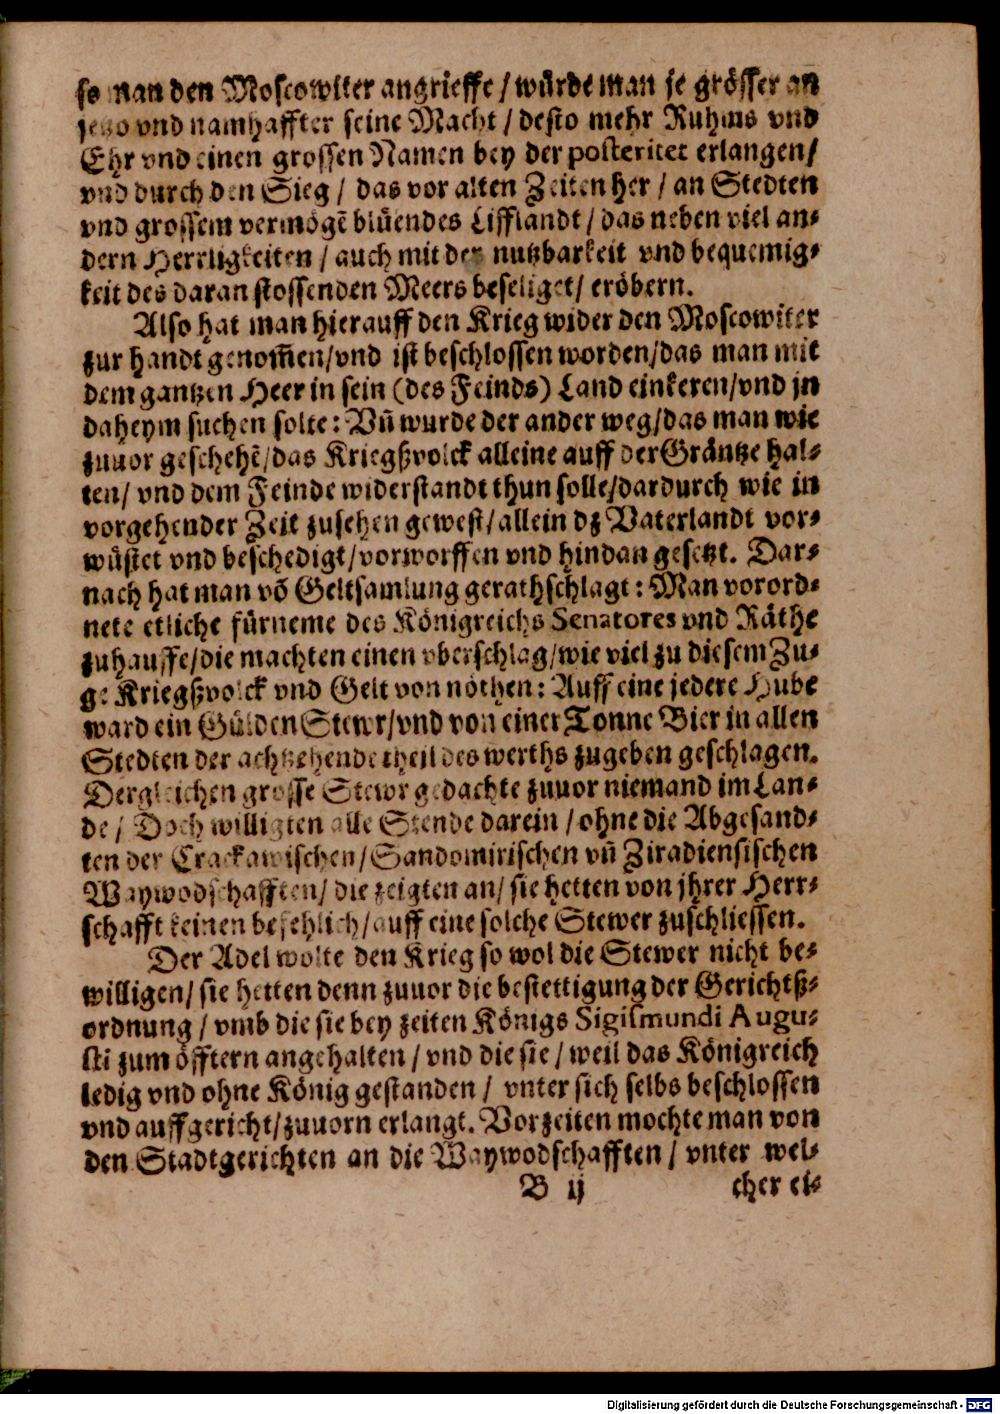 so man den Moscowiter angrieffe / würde man je grösser an
jetzo vnd namhaffter seine Macht / desto mehr Ruhms vnd
Ehr vnd einen grossen Namen bey der posteritet erlangen/
vnd durch den Sieg / das vor alten Zeiten her / an Stedten
vnd grossem vermögẽ blüendes Lifflandt / das neben viel an⸗
dern Herrligkeiten / auch mit der nutzbarkeit vnd bequemig⸗
keit des daran stossenden Meers beseliget/ eröbern.
Also hat man hierauff den Krieg wider den Moscowiter
zur handt genom̃en/vnd ist beschlossen worden/das man mit
dem gantzen Heer in sein (des Feinds) Land einkeren/vnd jn
daheym suchen solte: Vñ wurde der ander weg/das man wie
zuuor geschehẽ/das Kriegßvolck alleine auff der Gräntze hal⸗
ten/ vnd dem Feinde widerstandt thun solle/dardurch wie in
vorgehender Zeit zusehen gewest/allein dz Vaterlandt vor⸗
wüstet vnd beschedigt/vorworffen vnd hindan gesetzt. Dar⸗
nach hat man võ Geltsamlung gerathschlagt: Man vorord⸗
nete etliche fürneme des Königreichs Senatores vnd Räthe
zuhauffe/die machten einen vberschlag/wie viel zu diesem Zu⸗
ge Kriegßvolck vnd Gelt von nöthen: Auff eine jedere Hube
ward ein Gülden Stewr/vnd von einer Tonne Bier in allen
Stedten der achtzehende theil des werths zugeben geschlagen.
Dergleichen grosse Stewr gedachte zuuor niemand im Lan⸗
de / Doch willigten alle Stende darein / ohne die Abgesand⸗
ten der Crackawischen/Sandomirischen vñ Ziradiensischen
Waywodschafften/ die zeigten an/ sie hetten von jhrer Herr⸗
schafft keinen befehlich/auff eine solche Stewer zuschliessen.
Der Adel wolte den Krieg so wol die Stewer nicht be⸗
willigen/ sie hetten denn zuuor die bestettigung der Gerichtß⸗
ordnung / vmb die sie bey zeiten Königs Sigismundi Augu⸗
sti zum öfftern angehalten / vnd die sie / weil das Königreich
ledig vnd ohne König gestanden / vnter sich selbs beschlossen
vnd auffgericht/zuuorn erlangt. Vorzeiten mochte man von
den Stadtgerichten an die Waywodschafften / vnter wel⸗
B ij cher ei⸗
Digitalisierung gefördert durch die Deutsche Forschungsgemeinschaft - DFG